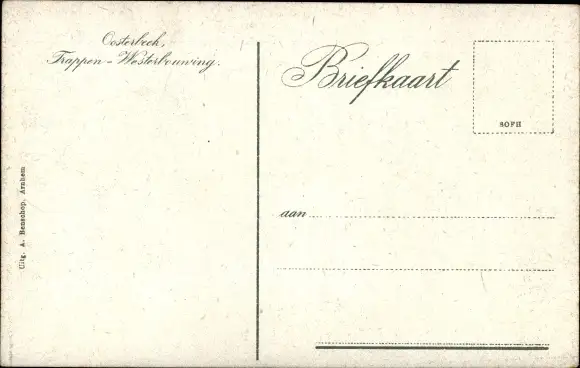 Oosterbeek,
Trappen - Westerbouwing.
Uitg. A. Benschop, Arnhem
Briefkaart
SOFH
aan